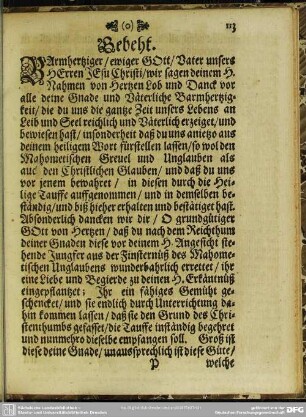 (o) 113
Gebeht.
BArmhertziger / ewiger GOtt / Vater unsers
HErren JEsu Christi / wir sagen deinem H.
Nahmen von Hertzen Lob und Danck vor
alle deine Gnade und Väterliche Barmhertzig-
keit / die du uns die gantze Zeit unsers Lebens an
Leib und Seel reichlich und Väterlich erzeiget / und
bewiesen hast / insonderheit daß du uns anietzo aus
deinem heiligem Wort fürstellen lassen / so wol den
Mahometischen Greuel und Unglauben als
auch den Christlichen Glauben / und daß du uns
vor jenem bewahret / in diesen durch die Hei-
lige Tauffe auffgenommen / und in demselben be-
ständig / und biß hieher erhalten und bestätiget hast.
Absonderlich dancken wir dir / O grundgütiger
GOtt von Hertzen / daß du nach dem Reichthum
deiner Gnaden diese vor deinem H. Angesicht ste-
hende Jungfer aus der Finsternüß des Mahome-
tischen Unglaubens wunderbahrlich errettet / ihr
eine Liebe und Begierde zu deinen H. Erkäntnüß
eingepflantzet: Ihr ein fähiges Gemüht ge-
schencket / und sie endlich durch Unterrichtung da-
hin kommen lassen / daß sie den Grund des Chri-
stenthumbs gefasset / die Tauffe inständig begehret
und nunmehro dieselbe empfangen soll. Groß ist
diese deine Gnade / unaussprechlich ist diese Güte /
P welche